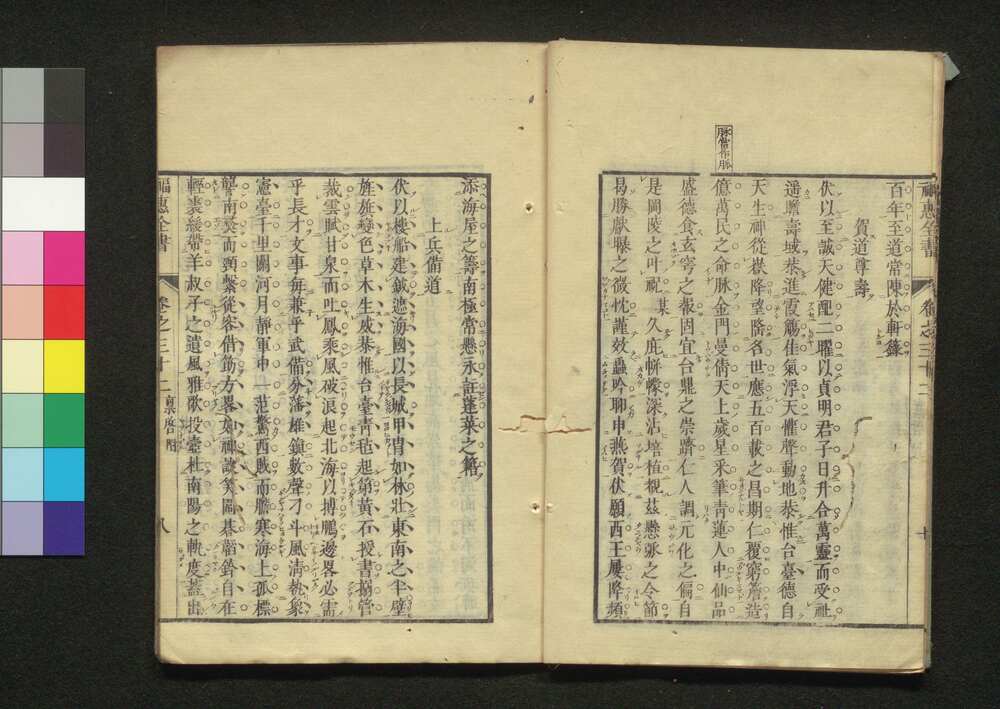 福惠全書 卷之三十二 十
百年至道常陳於軒籙
賀道尊壽
伏以至誠天健配二曜以貞明君子日升合萬靈而受祉
遥瞻壽域恭進霞觴佳氣浮天懽聲動地恭惟台臺德自
天生神從嶽降望隆名世應五百載之昌期仁覆窮簷造
億萬民之命脉金門曼倩天上歲星釆筆青蓮人中仙品
盛德食玄穹之報固宜台鼎之崇躋仁人調元化之偏自
是岡陵之叶祝 某 久庇帡幪深沾培植覩茲懸弧之令節
曷勝獻曝之微忱謹效蟲吟聊申燕賀伏願西王屢降頻
脉當作脈
添海屋之籌南極常懸永註蓬萊之籍
上兵備道
伏以樓船建鉞遮海國以長城甲胄如林壯東南之半壁
旌旗變色草木生威恭惟台臺青氊起第黃石授書搦管
裁雲賦甘泉而吐鳳乘風破浪起北海以搏鵬邊畧必需
乎長才文事每兼乎武備分藩雄鎮數聲刁斗風清執象
憲臺千里關河月靜軍中一范驚西賊而膽寒海上孤標
讋南裘而頸繫從容借箸方畧如神談笑圍碁韜鈐自在
輕裘緩帶羊叔子之遺風雅歌投壺杜南陽之軌度蓋出
福惠全書 卷之三十二 稟啓附 八